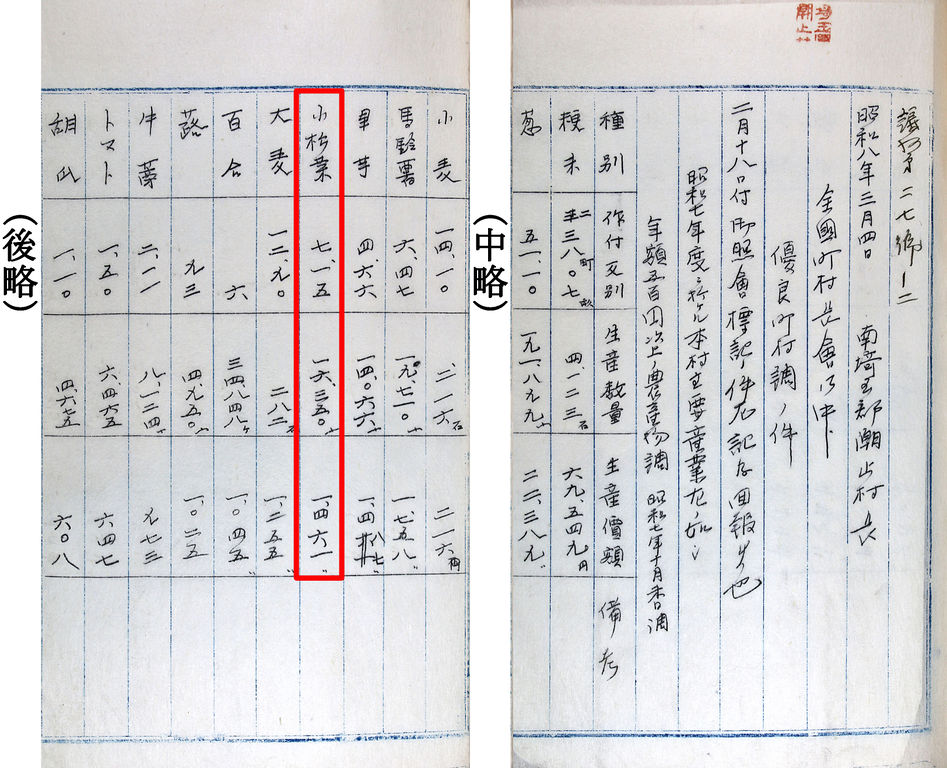 議第二七號ノ二
昭和八年三月四日 南埼玉郡潮止村長
全國町村長會御中
優良町村調ノ件
二月十八日付御照會標記ノ件左記及回報候也
昭和七年度ニ於ケル本村主要産業左ノ如シ
年額五百円以上ノ農産物調 昭和七年十月末日調
種別 作付反別 生産数量 生産價額 備考
粳米 二三八町〇七畝 四、一二三石 六九、五四九円
葱 五一、一〇 一九一、八九九〃 二二、三八九〃
(中略)
小麦 一四、一〇 二一六石 二一六円
馬鈴薯 六、四七 一九、七一〇〃 一、七五八〃
里芋 四、六六 一四、〇六六〃 一、四八七〃
小松菜 七、一五 一六、三五〇〃 一、四六一〃
大麦 一二、九〇 二八二石 一、二五五〃
百合 六 三四、八四八ヶ 一、〇四五〃
蕗 九三 四、九五〇〃 一、〇二五
牛蒡 二、一一 八、一二四〃 九七三
トマト 一、五〇 六、四六五 六四七
胡瓜 一、一〇 四、六七五 六〇八
(後略)